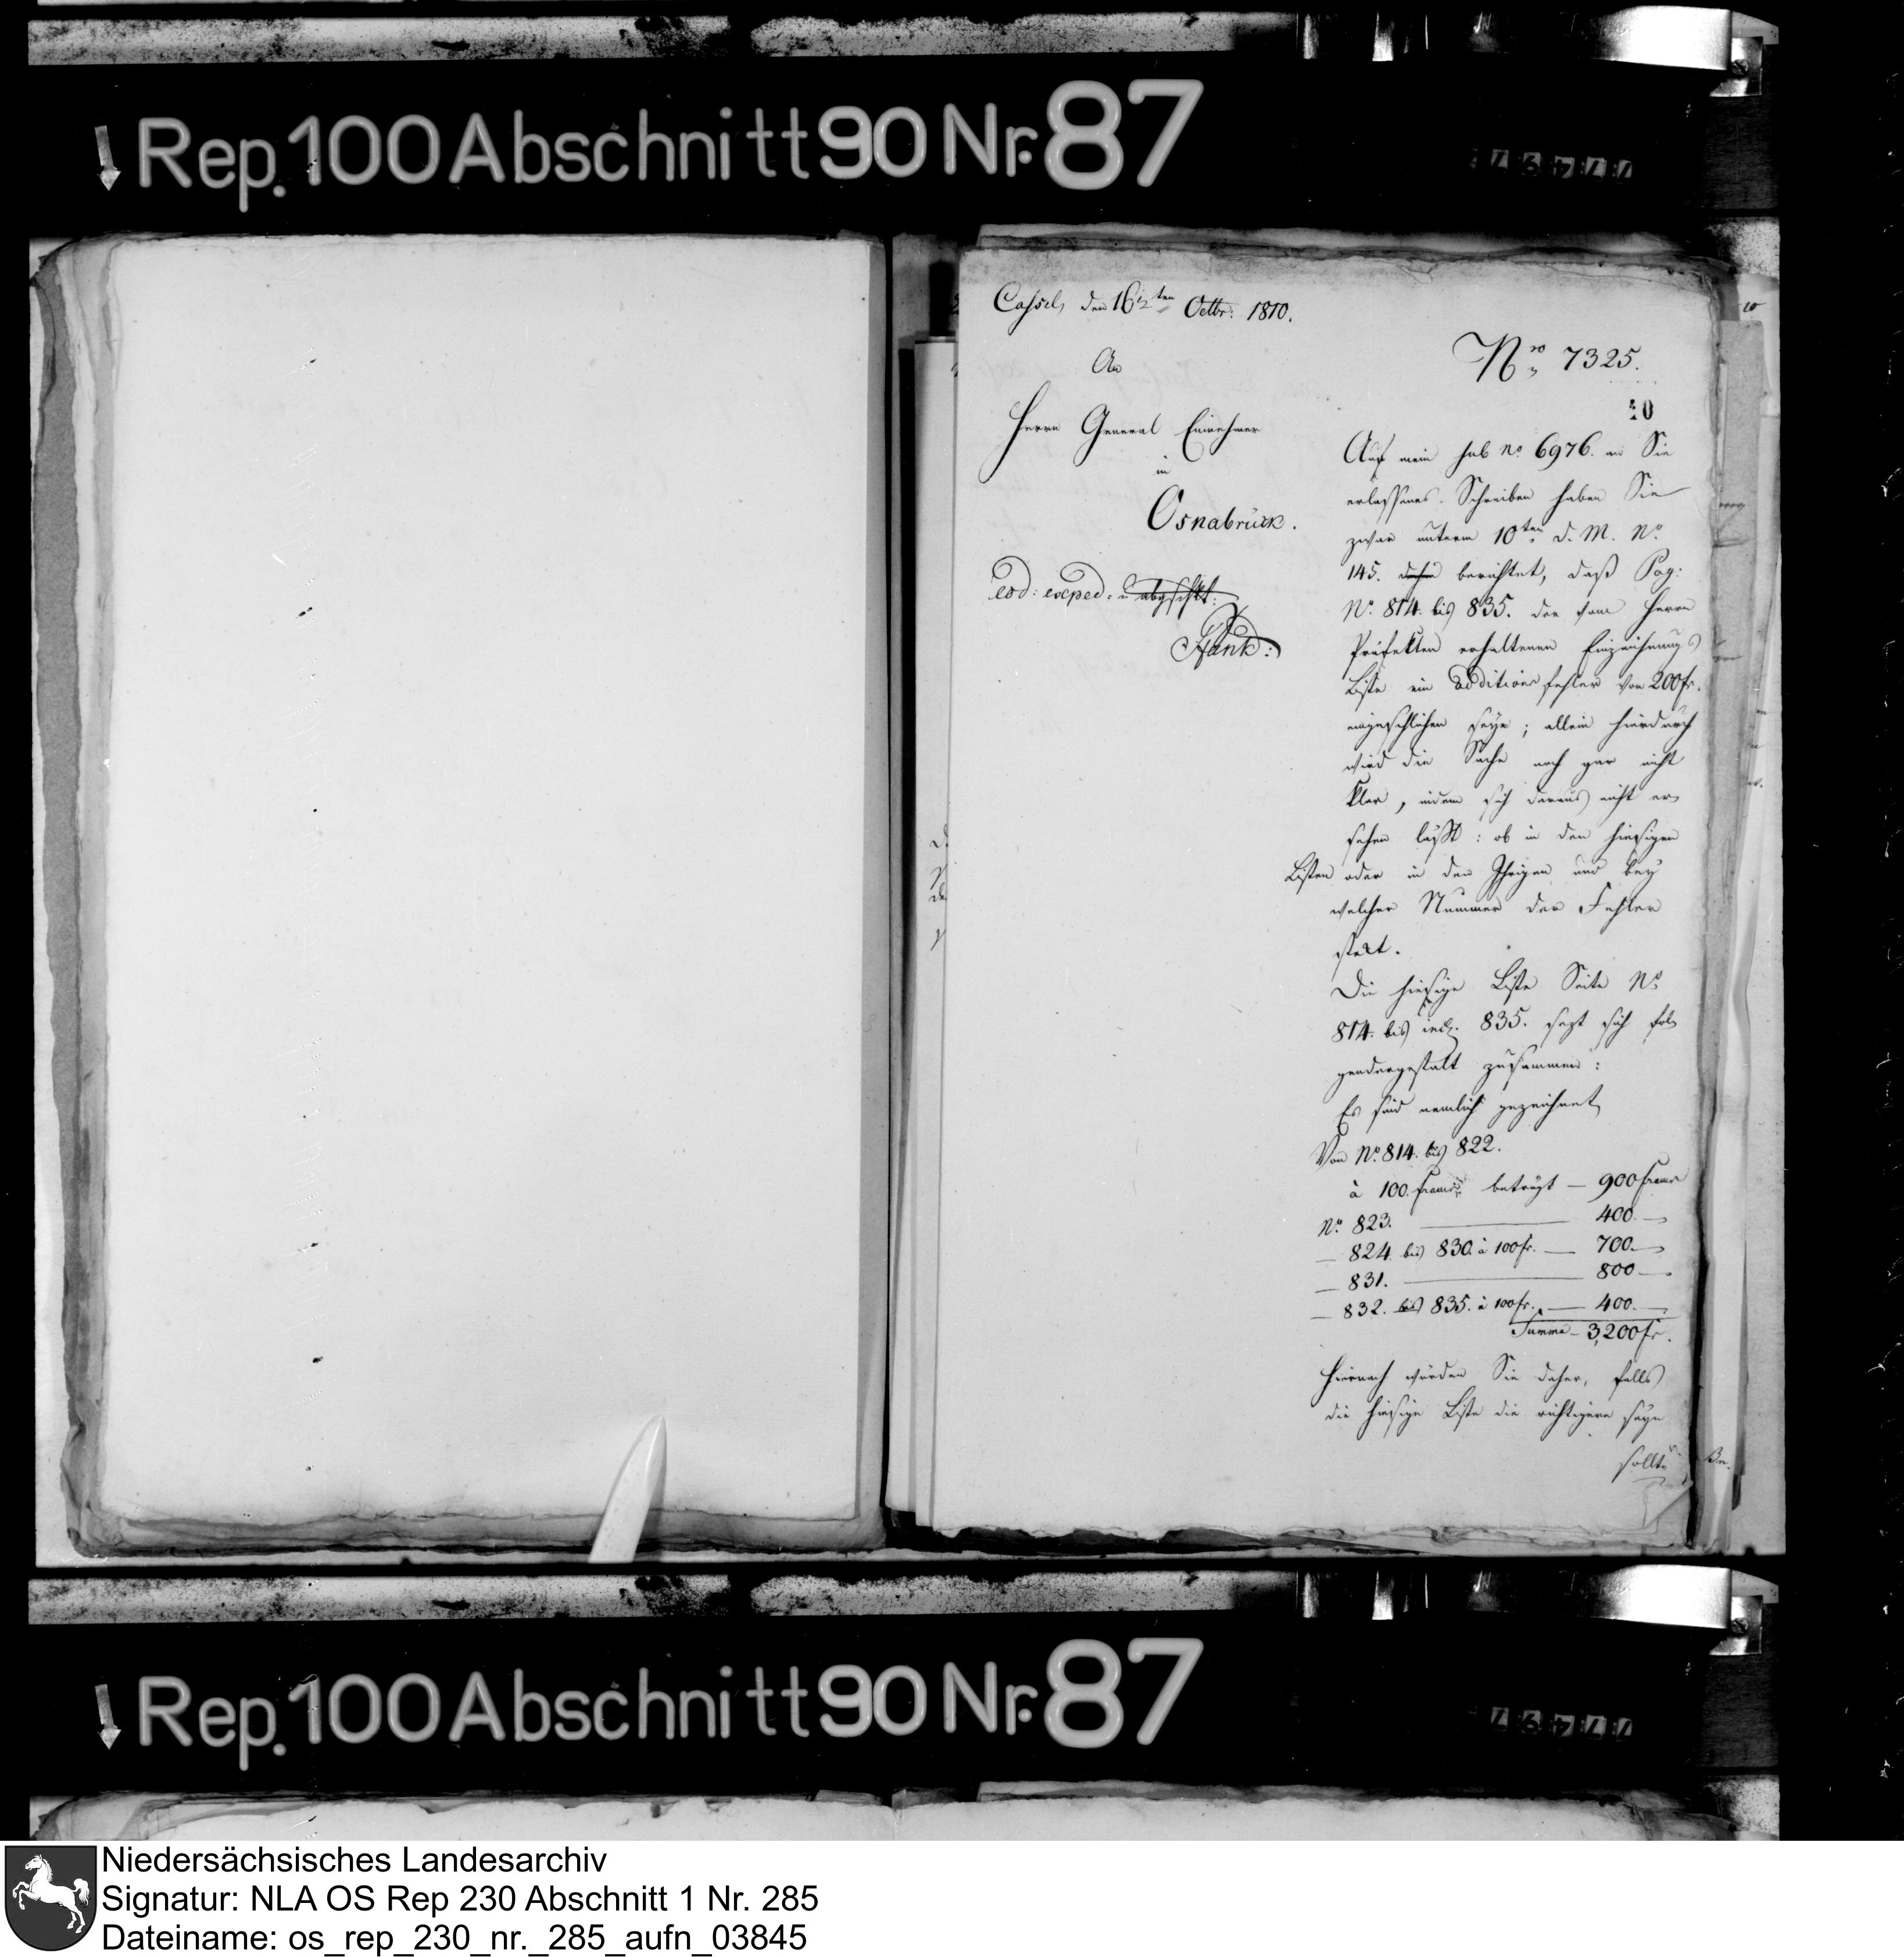 Rep. 100 Abschnitt 90 Nr. 87
Cassel, den 16ten Octbr: 1810.
An
Herrn General Einnehmer
in
Osnabrück.
eod: exped: u abgschkt:
No 7325.
20
Auf mein sub No 6976. an Sie
erlassenes Schreiben haben Sie
zwar unterm 10ten d. M. No
145. berichtet, daß Pag:
No. 814. bis 835. der vom Herrn
Präfekten erhaltenen Einzeichnungs
Liste ein Additionsfehler von 200 fr.
eingeschlichen seye; allein hierdurch
wird die Sache noch gar nicht
klar, indem sich daraus nicht er-
sehen läßt: ob in den hiesigen
Listen oder in den Ihrigen und bey
welcher Nummer der Fehler
stekt.
Die hiesige Liste Seite No
814. bis incl. 835. sezt sich fol-
gendergestalt zusammen:
Es sind nemlich gezeichnet
Von No. 814. bis 822.
à 100. Francs beträgt — 900 Francs
No. 823. — 400. —
— 824. bis 830. à 100 fr. — 700. —
— 831. — 800 —
— 832. bis 835. à 100 fr. — 400. —
Summa — 3,200 fr.
Hiernach würden Sie daher, falls
die hiesige Liste die richtigere seyn
sollte
Rep. 100 Abschnitt 90 Nr. 87
Niedersächsisches Landesarchiv
Signatur: NLA OS Rep 230 Abschnitt 1 Nr. 285
Dateiname: os_rep_230_nr._285_aufn_03845